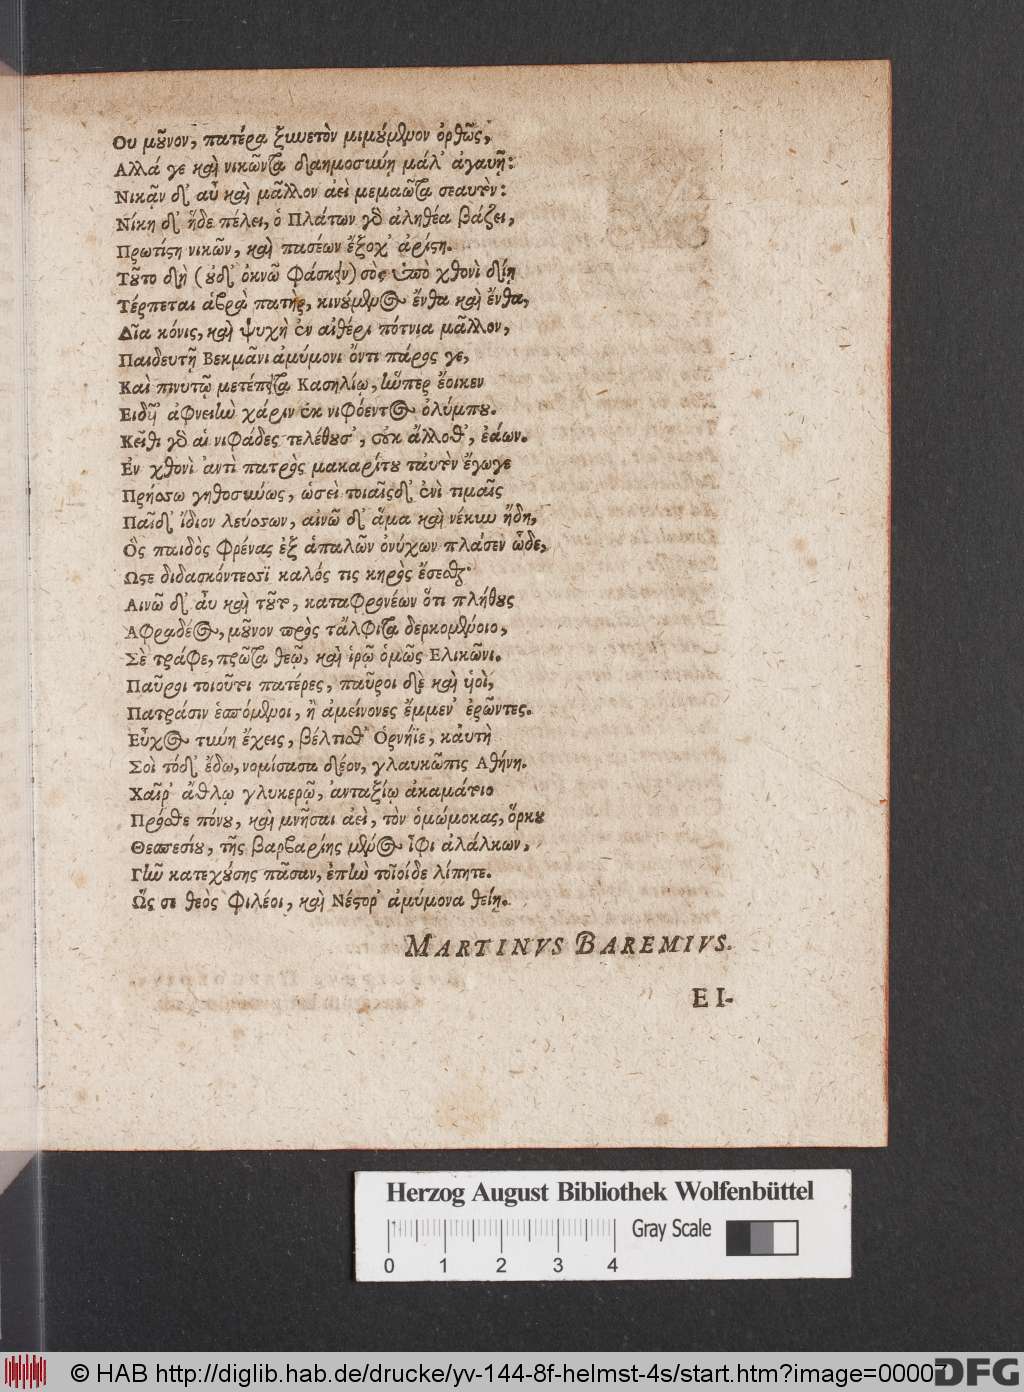 Ου μοῦνον, πατέρα ξυνετὸν μιμούμενον ὀρθῶς,
Αλλά γε καὶ νικῶντα δαημοσύνῃ μάλ' ἀγαυῇ:
Νικᾷν δ' αὖ καὶ μᾶλλον ἀεὶ μεμαῶτα σεαυτὸν:
Νίκη δ' ἥδε πέλει, ὁ Πλάτων γὸ ἀληθέα βάζει,
Πρωτίςη νικῶν, καὶ πασέων ἔξοχ' ἀρίςη.
Τοῦτο δὴ (οὐδ' ὀκνῶ φάσκειν) σὸς ὑπὸ χθονὶ δίῃ
Τέρπεται ἁβρὰ πατὴρ, κινούμενος ἔνθα καὶ ἔνθα,
Δῖα κόνις, καὶ ψυχὴ ἐν αἰθέρι πότνια μᾶλλον,
Παιδευτῇ Βεκμᾶνι ἀμύμονι ὄντι πάρος γε,
Καὶ πινυτῷ μετέπειτα Κασηλίῳ, ὥπερ ἔοικεν
Ειδεῖν ἀφνειὴν χάριν ἐκ νιφόεντος ὀλύμπου.
Κεῖθι γὸ αἱ νιφάδες τελέθουσ', οὐκ ἄλλοθ', ἐάων.
Ἐν χθονὶ ἀντὶ πατρὸς μακαρίτου ταυτὸν ἔγωγε
Πρήσσω γηθοσύνως, ὡσεὶ τοιαῖςδ' ἐνὶ τιμαῖς
Παῖδ' ἴδιον λεύσσων, αἰνῶ δ' ἅμα καὶ νέκυν ἤδη,
Ὃς παιδὸς φρένας ἐξ ἁπαλῶν ὀνύχων πλάσεν ὧδε,
Ωςε διδασκόντεσσϊ καλός τις κηρὸς ἔσεσθαι·
Αινῶ δ' αὖ καὶ τοῦτ, καταφρονέων ὅτι πλήθους
Αφραδέος, μοῦνον πρὸς τἄλφιτα δερκομένοιο,
Σὲ τράφε, πρῶτα θεῷ, καὶ ἱρῷ ὁμῶς Ελικῶνι.
Παῦροι τοιοῦτοι πατέρες, παῦροι δὲ καὶ υἱοὶ,
Πατράσιν ἑσπόμενοι, ἢ ἀμείνονες ἔμμεν' ἐρῶντες.
Εὖχος τύνη ἔχεις, βέλτισθ' Ὁρνήϊε, καὐτὴ
Σοὶ τόδ' ἔδω, νομίσασα δέον, γλαυκῶπις Αθήνη.
Χαῖρ' ἄθλῳ γλυκερῷ, ἀνταξίῳ ἀκαμάτοιο
Πρόσθε πόνου, καὶ μνῆσαι ἀεὶ, τὸν ὁμώμοκας, ὅρκου
Θεσπεσίου, τῆς βαρβαρίης μένος ἶφι ἀλάλκων,
Γῆν κατεχούσης πᾶσαν, ἐπὴν τοῖοίδε λίπητε.
Ὥς σε θεὸς φιλέοι, καὶ Νέςορ' ἀμύμονα θείη.
MARTINVS BAREMIVS.
EI-
Herzog August Bibliothek Wolfenbüttel
Gray Scale
0 1 2 3 4
© HAB http://diglib.hab.de/drucke/yv-144-8f-helmst-4s/start.htm?image=00007
DFG